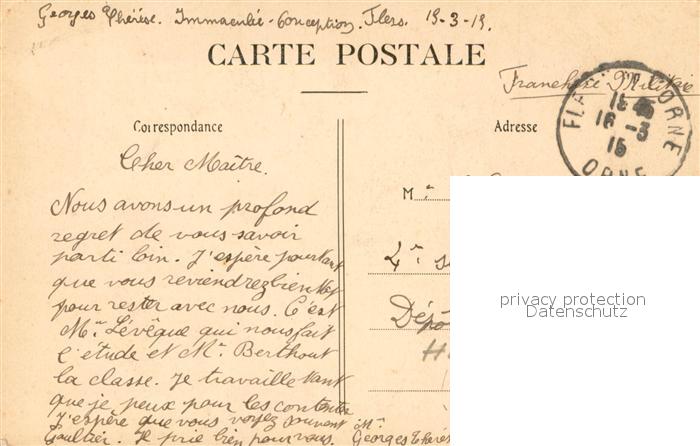 Georges Thérèse. Immaculée-Conception. Flers. 15-3-15.
CARTE POSTALE
Franchise Militaire
FLERS DE L'ORNE
18
16 -3
15
ORNE
Correspondance
Adresse
Cher Maître.
Nous avons un profond
regret de vous savoir
parti loin. J'espère pourtant
que vous reviendrez bientôt
pour rester avec nous. C'est
Mr Lévêque qui nous fait
l'étude et Mr. Berthout
la classe. Je travaille tant
que je peux pour les contenter
J'espère que vous voyez souvent Mr
Gaultier. Je prie bien pour vous. Georges Thérèse
M
4e
Dépô
privacy protection
Datenschutz